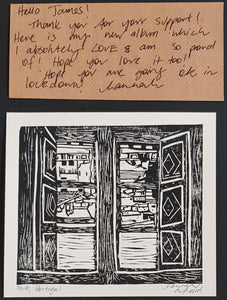 Hello James!
Thank you for your support!
Here is my new album which
I absolutely LOVE & am so proud
of! Hope you love it too!!
Hope you are going ok in
lockdown! Hannah
Portugal